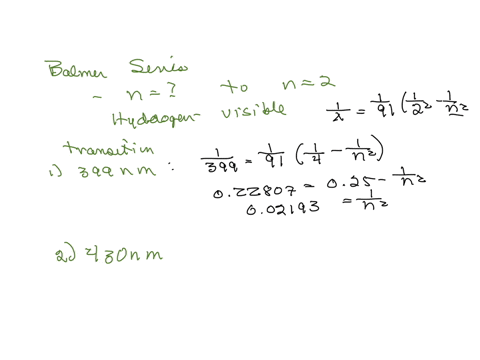 Balmer Series
- n = ? to n = 2
Hydrogen visible
1/λ = 1/91 (1/2² - 1/n²
transition
1) 399 nm : 1/399 = 1/91 (1/4 - 1/n²)
0.22807 = 0.25 - 1/n²
0.02193 = 1/n²
2) 430 nm